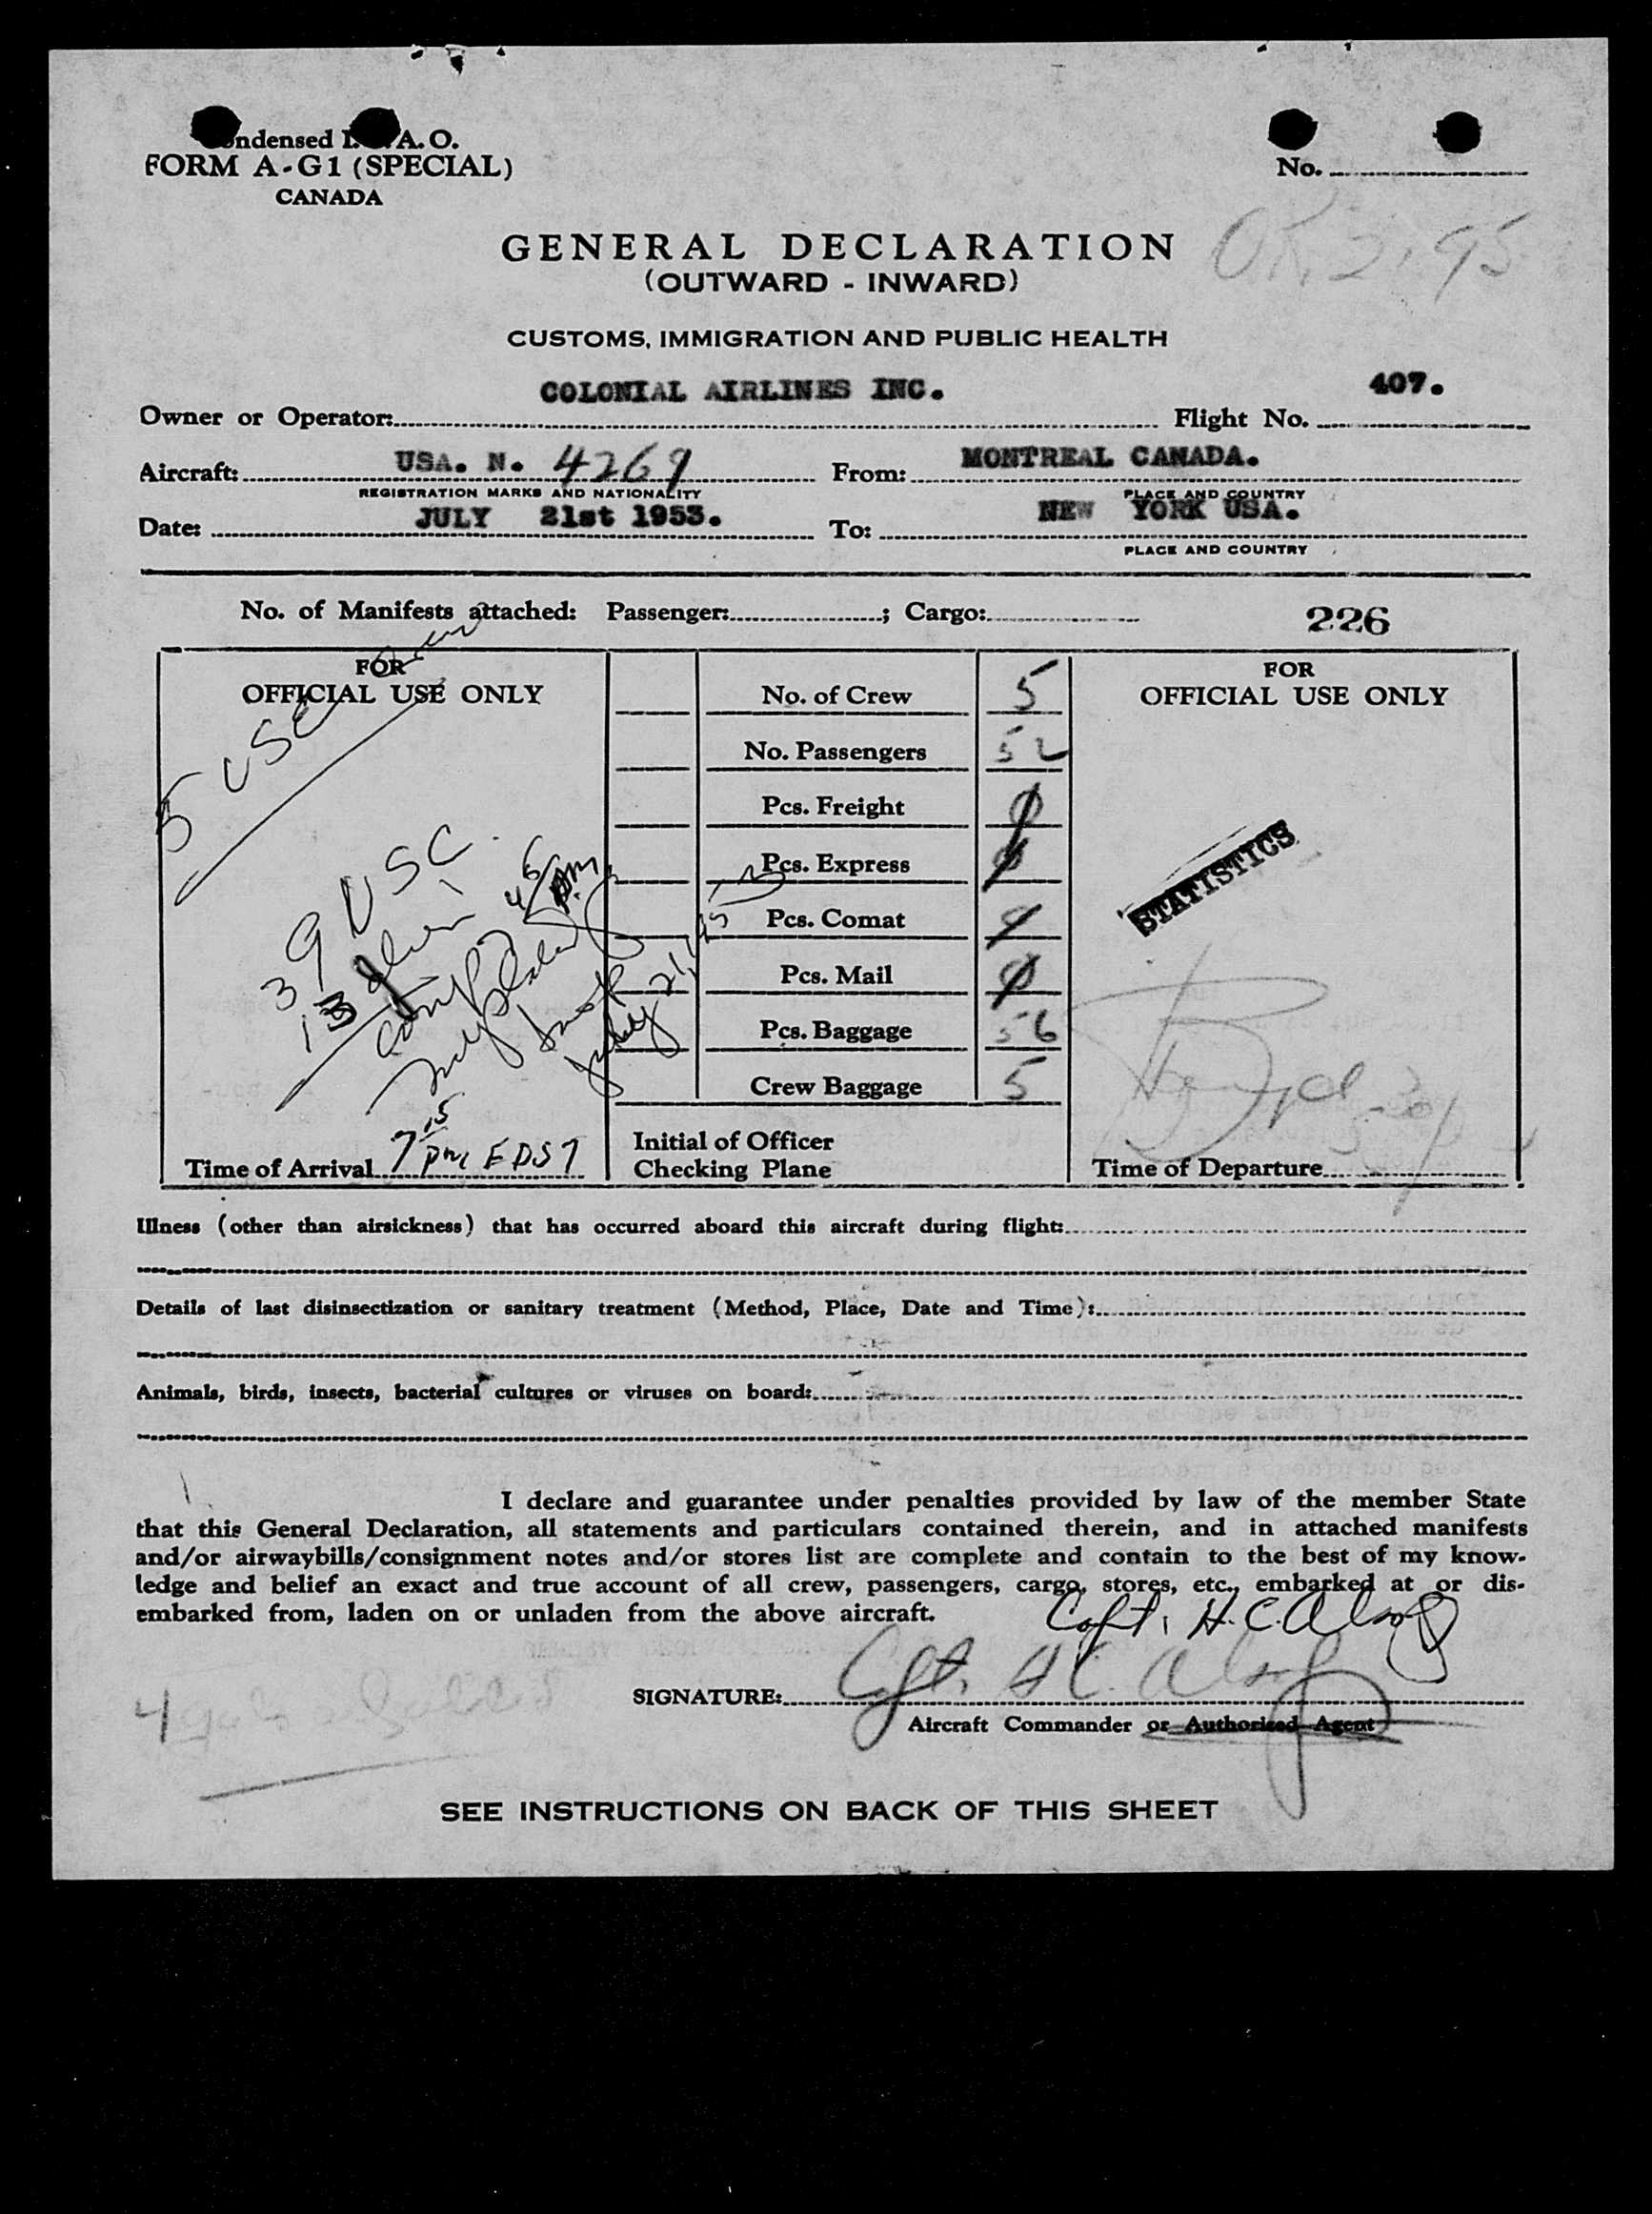 ndensed I. A. O.
FORM A-G1 (SPECIAL)
CANADA
No.
GENERAL DECLARATION
(OUTWARD - INWARD)
CUSTOMS, IMMIGRATION AND PUBLIC HEALTH
Owner or Operator: COLONIAL AIRLINES INC. Flight No. 407.
Aircraft: USA. N. 4269 From: MONTREAL CANADA.
REGISTRATION MARKS AND NATIONALITY PLACE AND COUNTRY
Date: JULY 21st 1953. To: NEW YORK USA.
PLACE AND COUNTRY
No. of Manifests attached: Passenger: ; Cargo: 226
FOR
OFFICIAL USE ONLY
5 USC
39 USC
13
45 PM
July 21, 1953
Time of Arrival 7 15 pm EDST
No. of Crew 5
No. Passengers 52
Pcs. Freight 0
Pcs. Express 0
Pcs. Comat
Pcs. Mail 0
Pcs. Baggage 56
Crew Baggage 5
Initial of Officer
Checking Plane
FOR
OFFICIAL USE ONLY
STATISTICS
Time of Departure
Illness (other than airsickness) that has occurred aboard this aircraft during flight:
Details of last disinsectization or sanitary treatment (Method, Place, Date and Time):
Animals, birds, insects, bacterial cultures or viruses on board:
I declare and guarantee under penalties provided by law of the member State
that this General Declaration, all statements and particulars contained therein, and in attached manifests
and/or airwaybills/consignment notes and/or stores list are complete and contain to the best of my know-
ledge and belief an exact and true account of all crew, passengers, cargo, stores, etc., embarked at or dis-
embarked from, laden on or unladen from the above aircraft.
Capt. H.C. Alsop
SIGNATURE: Capt. H C. Alsop
Aircraft Commander or Authorized Agent
SEE INSTRUCTIONS ON BACK OF THIS SHEET